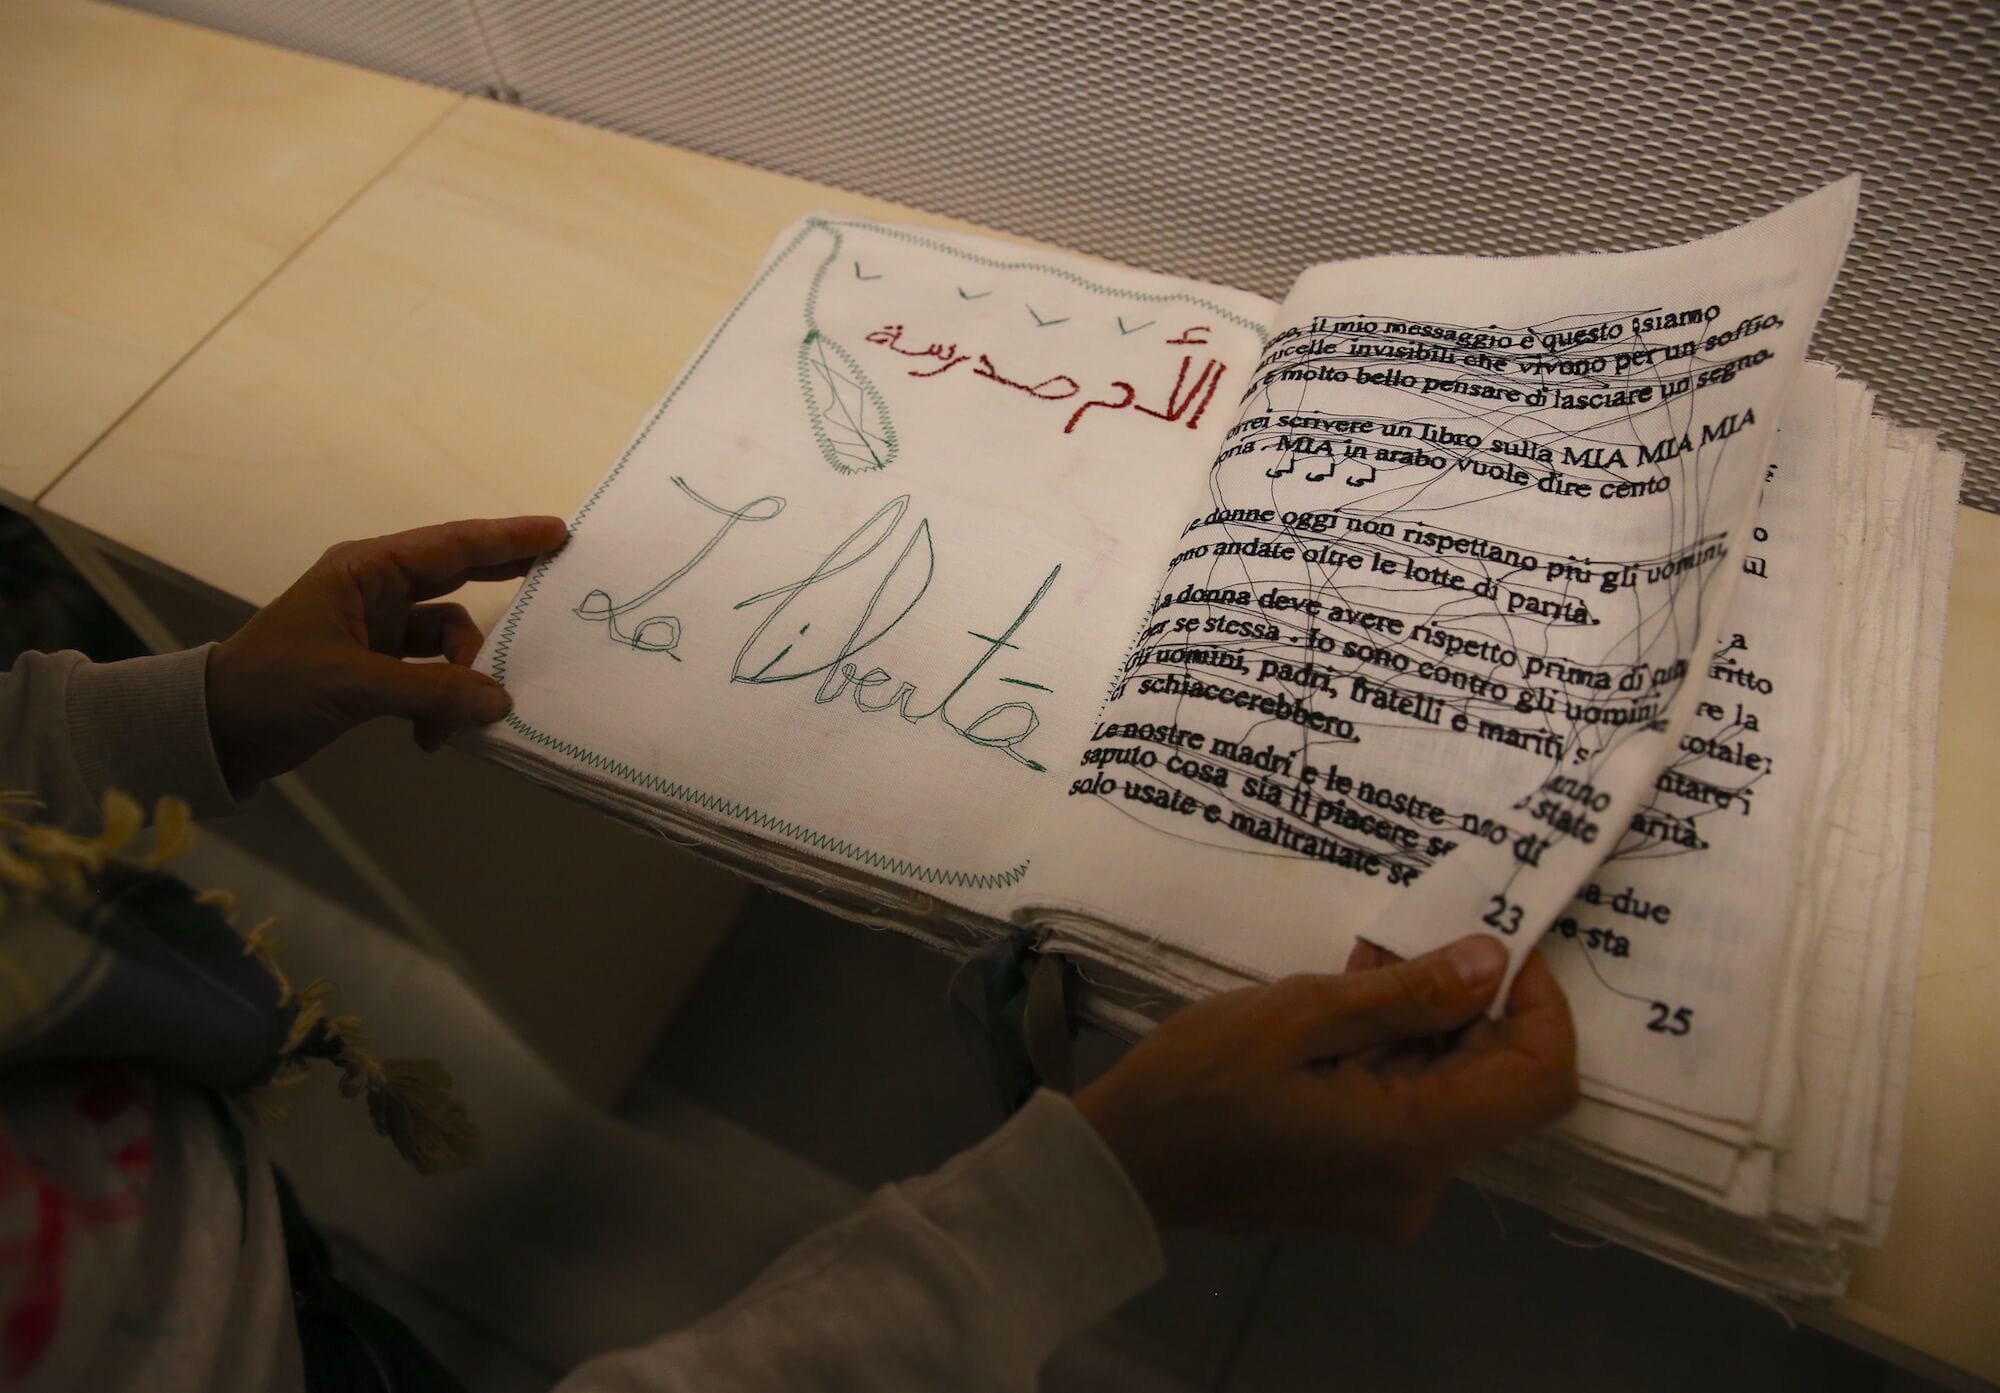 الأم مدرسة
La libertà
il mio messaggio è questo : siamo
invisibili che vivono per un soffio,
è molto bello pensare di lasciare un segno.
scrivere un libro sulla MIA MIA MIA
MIA in arabo vuole dire cento
Le donne oggi non rispettano più gli uomini,
sono andate oltre le lotte di parità.
La donna deve avere rispetto prima di
per se stessa . Io sono contro gli uomini.
Gli uomini, padri, fratelli e mariti
schiaccerebbero.
Le nostre madri e le nostre
saputo cosa sia il piacere state
solo usate e maltrattate di
23
la
due
sta
25